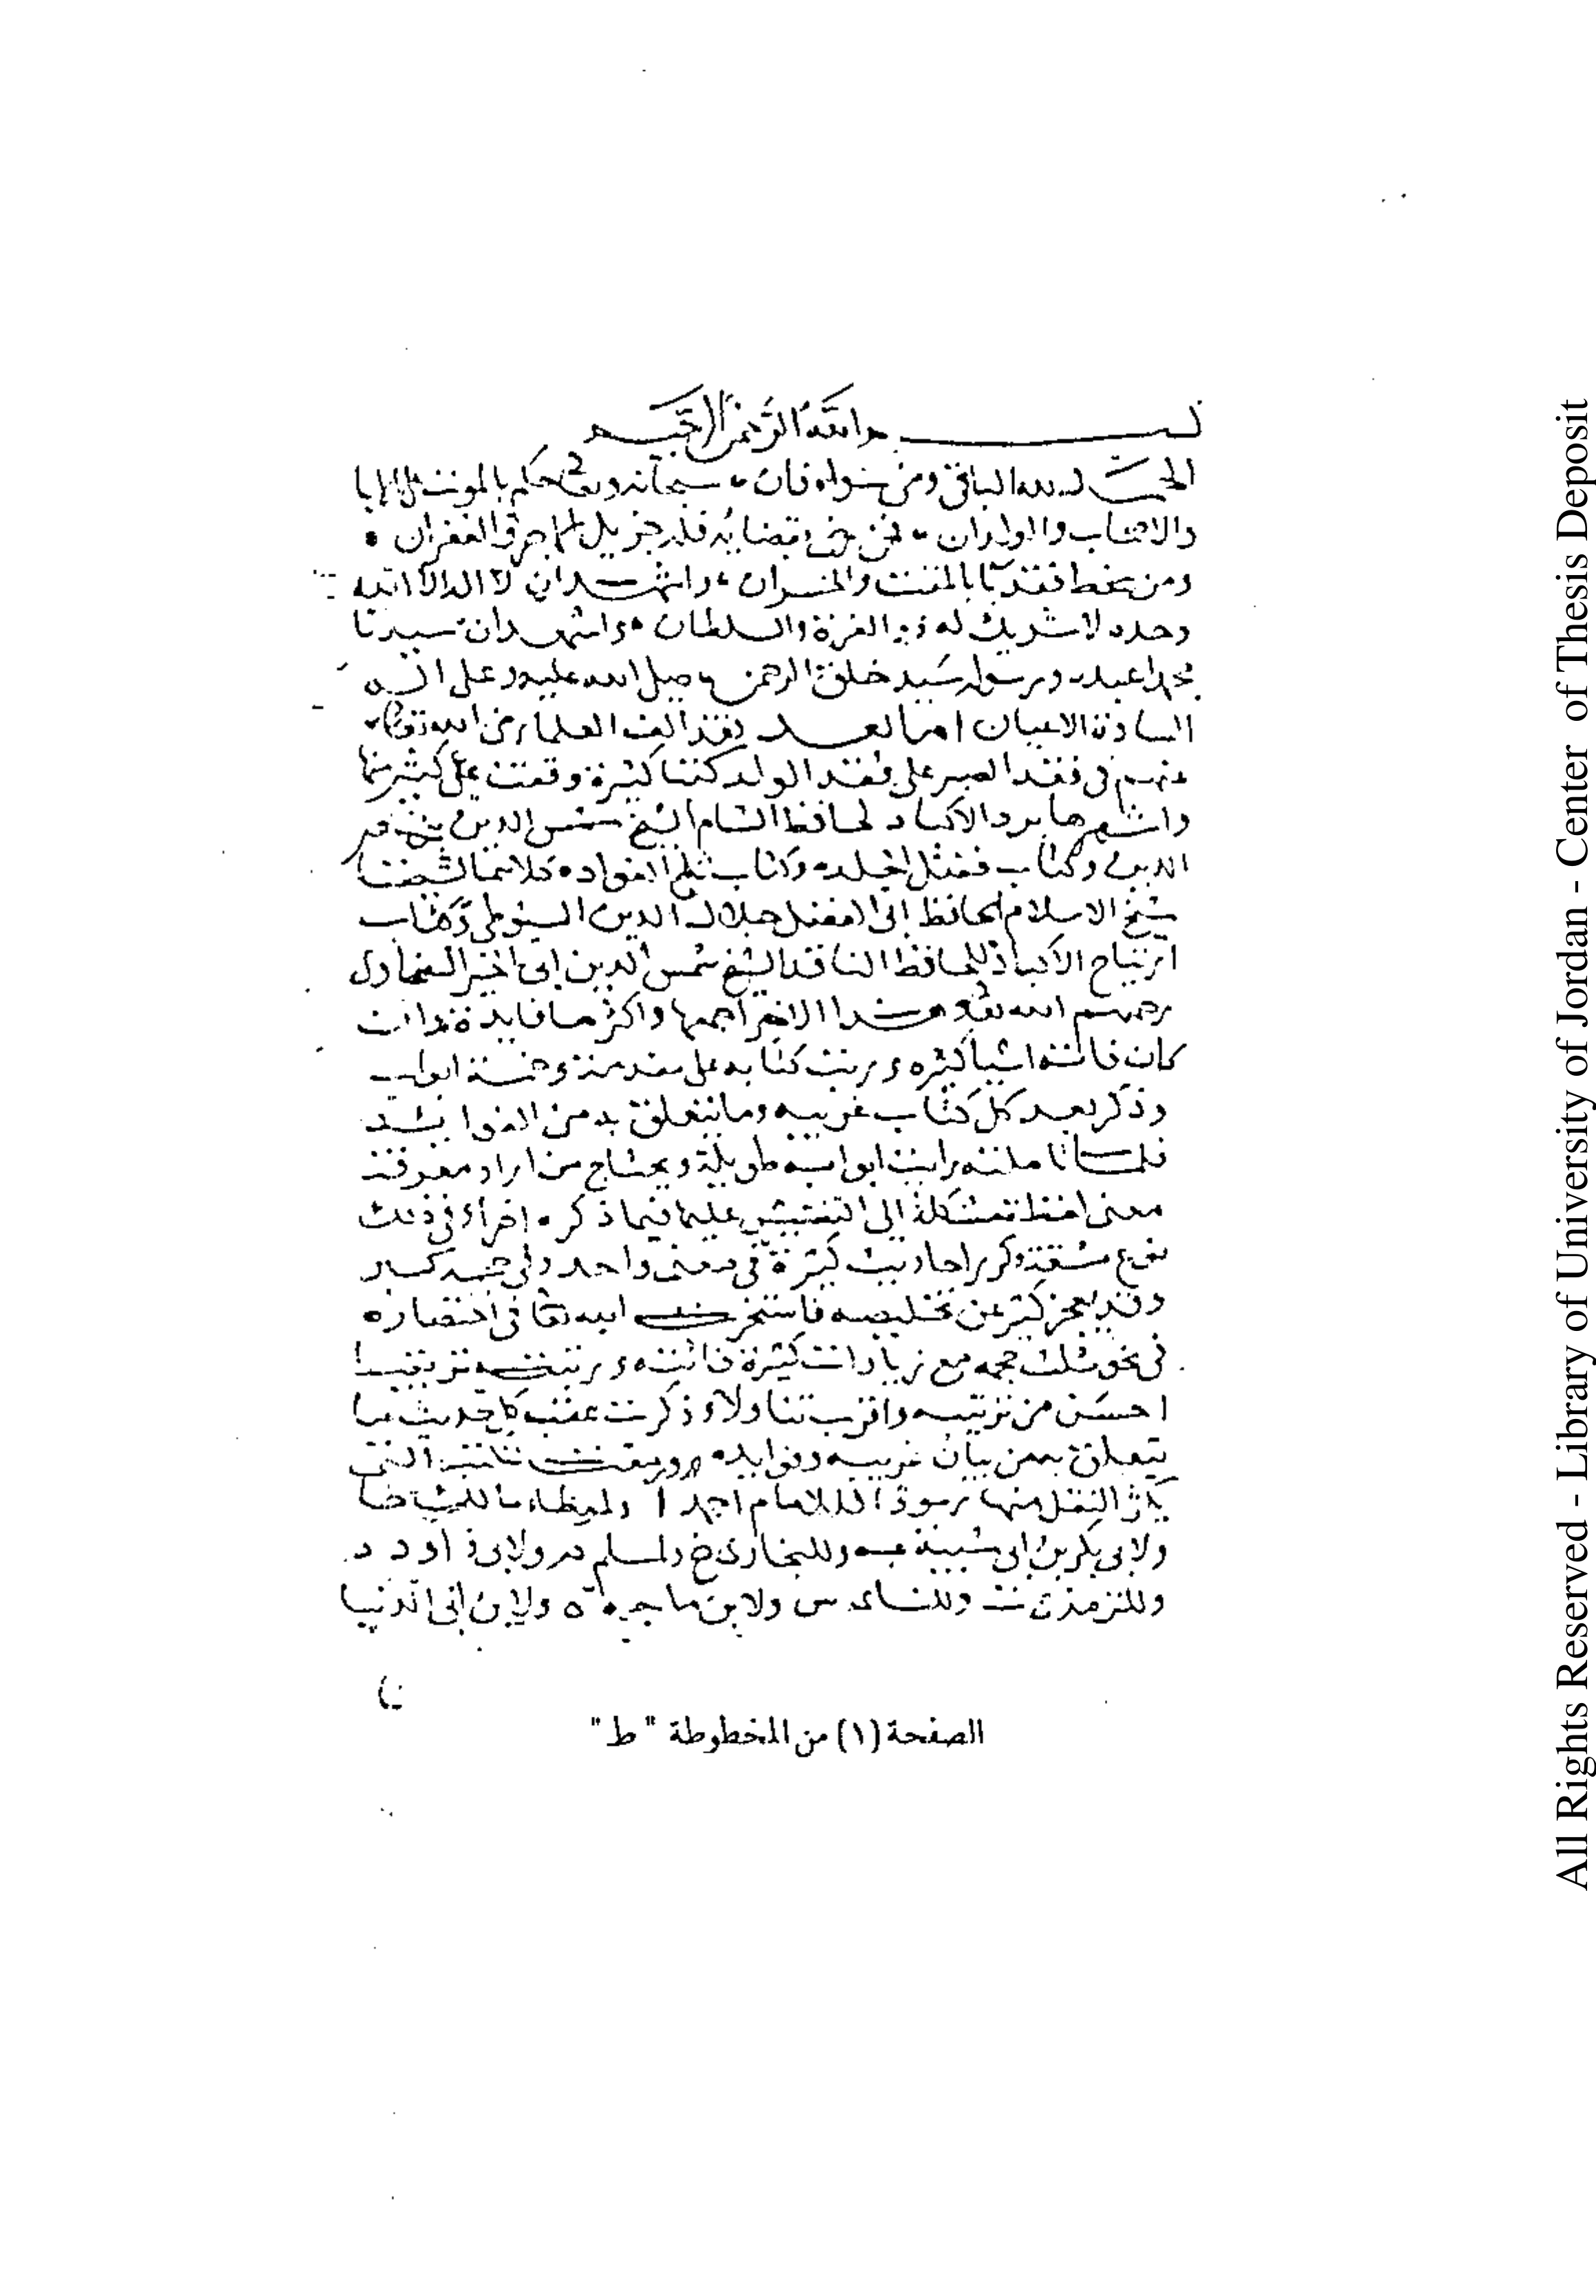 بسم الله الرحمن الرحيم
الحمد لله الباقي ومن سواه فان سبحانه وتعالى حكم بالموت على الابا
والاعقاب والولدان فمن رضي بقضايه فله جزيل الاجر والغفران
ومن سخط فقد با بالمقت والخسران واشهد ان لا اله الا الله
وحده لا شريك له ذو العزة والسلطان واشهد ان سيدنا
محمدا عبده ورسوله سيد خلق الرحمن صلى الله عليه وعلى اله
السادة الاعيان اما بعد فقد الف العلما رضي الله تعالى
عنهم في فقد الصبر على فقد الولد كتبا كثيرة وقفت على كثير منها
واشهرها برد الاكباد لحافظ الشام الشيخ شمس الدين بن ناصر
الدين وكتاب فضل الجلد وكتاب ثلج الفواد كلاهما لشيخنا
شيخ الاسلام الحافظ ابي الفضل جلال الدين السيوطي وكتاب
ارتياح الاكباد للحافظ الناقد الشيخ شمس الدين ابي الخير السخاوي
رحمهم الله تعالى وهذا الاخير اجمعها واكثرها فايدة وان
كان فاتته اشيا كثيره ورتب كتابه على مقدمة وخمسة ابواب
وذكر بعد كل كتاب غريبه وما يتعلق به من الفوايد
فلما تاملته رايت ابوابه طويلة ويحتاج من اراد معرفة
معنى لفظة مشكلة الى التفتيش عليها فيما ذكره اخرا وفي ذلك
نوع مشقة وكرر احاديث كثيرة في معنى واحد
وقد يعجز كثير عن تحصيله فاستخرت الله تعالى في اختصاره
في نحو ثلث حجمه مع زيادات كثيرة فاتته ورتبته ترتيبا
احسن من ترتيبه واقرب تناولا وذكرت عقب كل حديث ما
يتعلق به من بيان غريبه وفوايده ورقمت للكتب التي
يكثر النقل منها رموزا فللامام احمد ا ولموطا مالك طا
ولابي بكر بن ابي شيبة شيبه وللبخاري خ ولمسلم م ولابي داود د
وللترمذي ت وللنساى س ولابن ماجه ه ولابن ابي الدنيا
الصفحة (١) من المخطوطة "ط"
All Rights Reserved - Library of University of Jordan - Center of Thesis Deposit